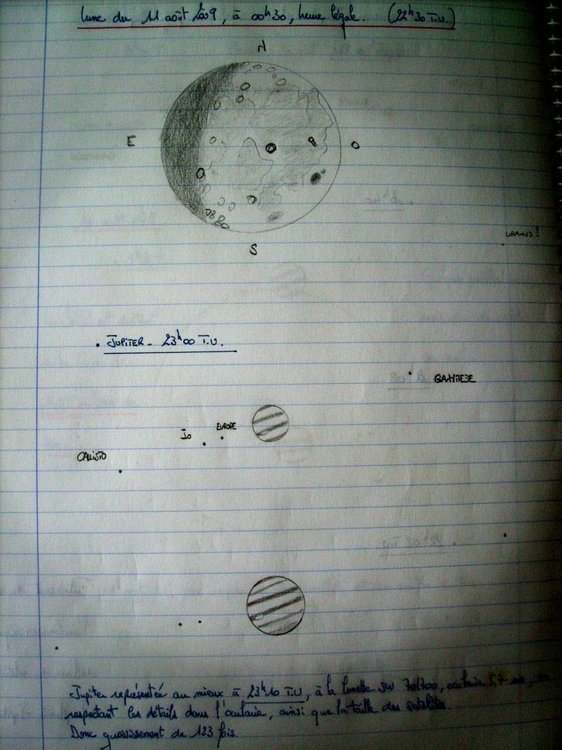 Lune du 11 août 2009, à 00h30, heure légale. (22h30 T.U.)
N
E
O
S
URANUS?
JUPITER - 23h00 T.U.
GANYMEDE
EUROPE
Io
CALLISTO
Jupiter représentée au mieux à 23h10 T.U, à la lunette SW 70/700, oculaire 5.7 mm, en
respectant les détails dans l'oculaire, ainsi que la taille des satellites.
Donc grossissement de 123 fois.